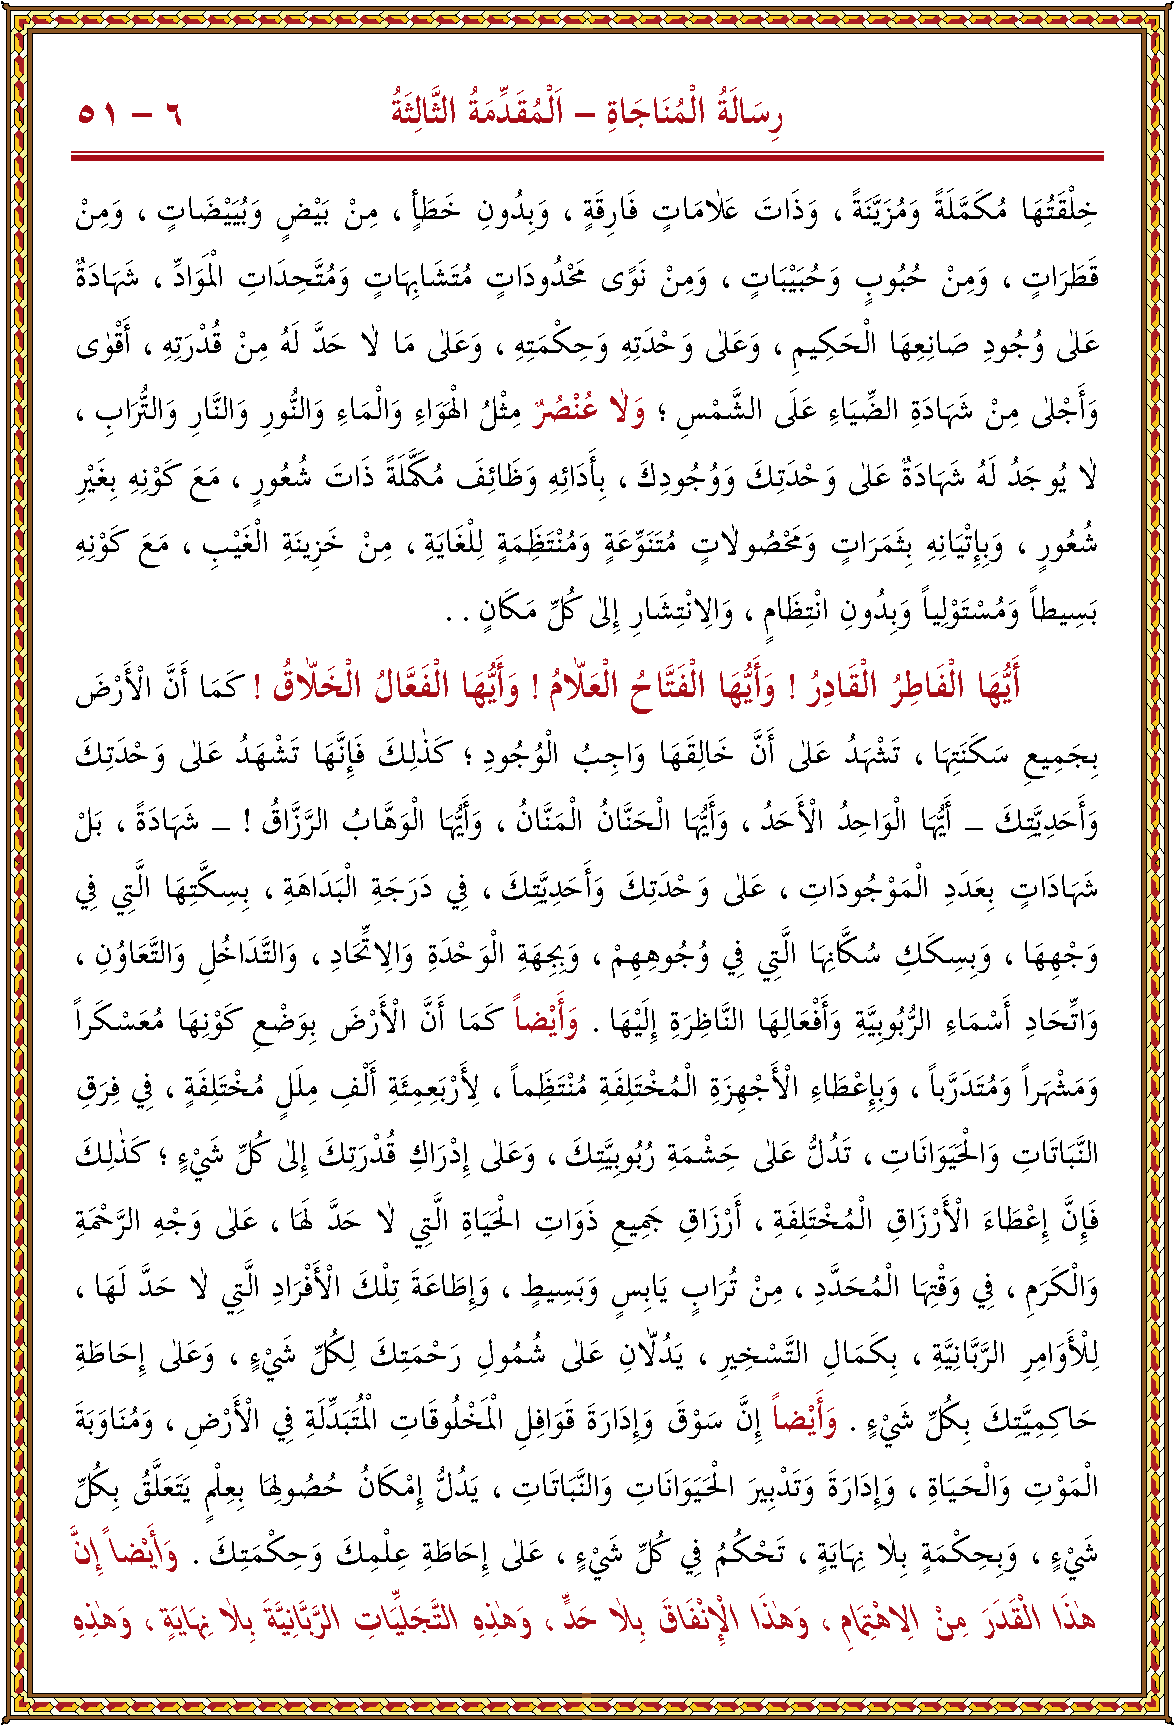 رِسَالَةُ الْمُنَاجَاةِ – اَلْمُقَدِّمَةُ الثَّالِثَةُ ٦ – ٥١
خِلْقَتُهَا مُكَمَّلَةً وَمُزَيَّنَةً ، وَذَاتَ عَلاَمَاتٍ فَارِقَةٍ ، وَبِدُونِ خَطَأٍ ، مِنْ بَيْضٍ وَبُيَيْضَاتٍ ، وَمِنْ
قَطَرَاتٍ ، وَمِنْ حُبُوبٍ وَحُبَيْبَاتٍ ، وَمِنْ نَوًى مَحْدُودَاتٍ مُتَشَابِهَاتٍ وَمُتَّحِدَاتِ الْمَوَادِّ ، شَهَادَةٌ
عَلٰى وُجُودِ صَانِعِهَا الْحَكِيمِ ، وَعَلٰى وَحْدَتِهِ وَحِكْمَتِهِ ، وَعَلٰى مَا لاٰ حَدَّ لَهُ مِنْ قُدْرَتِهِ ، أَقْوٰى
وَأَجْلٰى مِنْ شَهَادَةِ الضِّيَاءِ عَلَى الشَّمْسِ ؛ وَلاٰ عُنْصُرٌ مِثْلُ الْهَوَاءِ وَالْمَاءِ وَالنُّورِ وَالنَّارِ وَالتُّرَابِ ،
لاٰ يُوجَدُ لَهُ شَهَادَةٌ عَلٰى وَحْدَتِكَ وَوُجُودِكَ ، بِأَدَائِهِ وَظَائِفَ مُكَمَّلَةً ذَاتَ شُعُورٍ ، مَعَ كَوْنِهِ بِغَيْرِ
شُعُورٍ ، وَبِإِتْيَانِهِ بِثَمَرَاتٍ وَمَحْصُولاٰتٍ مُتَنَوِّعَةٍ وَمُنْتَظِمَةٍ لِلْغَايَةِ ، مِنْ خَزِينَةِ الْغَيْبِ ، مَعَ كَوْنِهِ
بَسِيطاً وَمُسْتَوْلِياً وَبِدُونِ انْتِظَامٍ ، وَالاِنْتِشَارِ إِلٰى كُلِّ مَكَانٍ . .
أَيُّهَا الْفَاطِرُ الْقَادِرُ ! وَأَيُّهَا الْفَتَّاحُ الْعَلاَّمُ ! وَأَيُّهَا الْفَعَّالُ الْخَلاَّقُ ! كَمَا أَنَّ الْأَرْضَ
بِجَمِيعِ سَكَنَتِهَا ، تَشْهَدُ عَلٰى أَنَّ خَالِقَهَا وَاجِبُ الْوُجُودِ ؛ كَذٰلِكَ فَإِنَّهَا تَشْهَدُ عَلٰى وَحْدَتِكَ
وَأَحَدِيَّتِكَ – أَيُّهَا الْوَاحِدُ الْأَحَدُ ، وَأَيُّهَا الْحَنَّانُ الْمَنَّانُ ، وَأَيُّهَا الْوَهَّابُ الرَّزَّاقُ ! – شَهَادَةً ، بَلْ
شَهَادَاتٍ بِعَدَدِ الْمَوْجُودَاتِ ، عَلٰى وَحْدَتِكَ وَأَحَدِيَّتِكَ ، فِي دَرَجَةِ الْبَدَاهَةِ ، بِسِكَّتِهَا الَّتِي فِي
وَجْهِهَا ، وَبِسِكَكِ سُكَّانِهَا الَّتِي فِي وُجُوهِهِمْ ، وَبِجِهَةِ الْوَحْدَةِ وَالاِتِّحَادِ ، وَالتَّدَاخُلِ وَالتَّعَاوُنِ ،
وَاتِّحَادِ أَسْمَاءِ الرُّبُوبِيَّةِ وَأَفْعَالِهَا النَّاظِرَةِ إِلَيْهَا . وَأَيْضاً كَمَا أَنَّ الْأَرْضَ بِوَضْعِ كَوْنِهَا مُعَسْكَراً
وَمَشْهَراً وَمُتَدَرَّباً ، وَبِإِعْطَاءِ الْأَجْهِزَةِ الْمُخْتَلِفَةِ مُنْتَظِماً ، لِأَرْبَعِمِئَةِ أَلْفِ مِلَلٍ مُخْتَلِفَةٍ ، فِي فِرَقِ
النَّبَاتَاتِ وَالْحَيَوَانَاتِ ، تَدُلُّ عَلٰى حِشْمَةِ رُبُوبِيَّتِكَ ، وَعَلٰى إِدْرَاكِ قُدْرَتِكَ إِلٰى كُلِّ شَيْءٍ ؛ كَذٰلِكَ
فَإِنَّ إِعْطَاءَ الْأَرْزَاقِ الْمُخْتَلِفَةِ ، أَرْزَاقِ جَمِيعِ ذَوَاتِ الْحَيَاةِ الَّتِي لاٰ حَدَّ لَهَا ، عَلٰى وَجْهِ الرَّحْمَةِ
وَالْكَرَمِ ، فِي وَقْتِهَا الْمُحَدَّدِ ، مِنْ تُرَابٍ يَابِسٍ وَبَسِيطٍ ، وَإِطَاعَةَ تِلْكَ الْأَفْرَادِ الَّتِي لاٰ حَدَّ لَهَا ،
لِلْأَوَامِرِ الرَّبَّانِيَّةِ ، بِكَمَالِ التَّسْخِيرِ ، يَدُلاَّنِ عَلٰى شُمُولِ رَحْمَتِكَ لِكُلِّ شَيْءٍ ، وَعَلٰى إِحَاطَةِ
حَاكِمِيَّتِكَ بِكُلِّ شَيْءٍ . وَأَيْضاً إِنَّ سَوْقَ وَإِدَارَةَ قَوَافِلِ الْمَخْلُوقَاتِ الْمُتَبَدِّلَةِ فِي الْأَرْضِ ، وَمُنَاوَبَةَ
الْمَوْتِ وَالْحَيَاةِ ، وَإِدَارَةَ وَتَدْبِيرَ الْحَيَوَانَاتِ وَالنَّبَاتَاتِ ، يَدُلُّ إِمْكَانُ حُصُولِهَا بِعِلْمٍ يَتَعَلَّقُ بِكُلِّ
شَيْءٍ ، وَبِحِكْمَةٍ بِلاٰ نِهَايَةٍ ، تَحْكُمُ فِي كُلِّ شَيْءٍ ، عَلٰى إِحَاطَةِ عِلْمِكَ وَحِكْمَتِكَ . وَأَيْضاً إِنَّ
هٰذَا الْقَدَرَ مِنْ الاِهْتِمَامِ ، وَهٰذَا الْإِنْفَاقَ بِلاٰ حَدٍّ ، وَهٰذِهِ التَّجَلِّيَاتِ الرَّبَّانِيَّةَ بِلاٰ نِهَايَةٍ ، وَهٰذِهِ